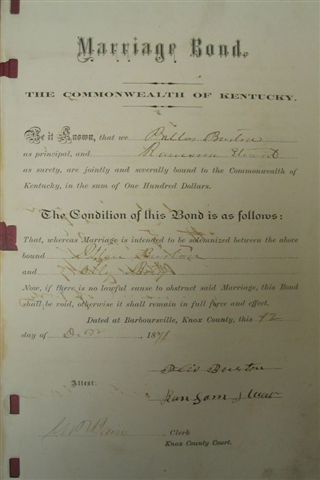 Marriage Bond.
THE COMMONWEALTH OF KENTUCKY.
Be it Known, that we Burton
as principal, and
as surety, are jointly and severally bound to the Commonwealth of
Kentucky, in the sum of One Hundred Dollars.
The Condition of this Bond is as follows:
That, whereas Marriage is intended to be solemnized between the above
bound Burton
and
Now, if there is no lawful cause to obstruct said Marriage, this Bond
shall be void, otherwise it shall remain in full force and effect.
Dated at Barboursville, Knox County, this 12
day of 1871
Burton
Attest:
Ransom
Clerk
Knox County Court.